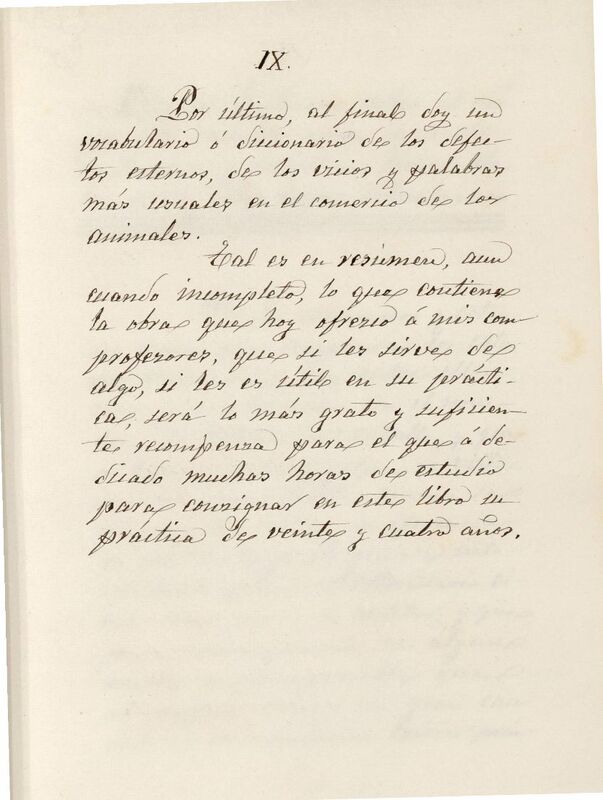 IX.
Por último, al final doy un
vocabulario ó diccionario de los defec-
tos esternos, de los vicios y palabras
más usuales en el comercio de los
animales.
Tal es en resúmen, aun
cuando incompleto, lo que contiene
la obra que hoy ofrezco á mis com
profesores, que si les sirve de
algo, si les es útil en su prácti-
ca, será lo más grato y suficien-
te recompenza para el que á de-
dicado muchas horas de estudio
para consignar en este libro su
práctica de veinte y cuatro años.